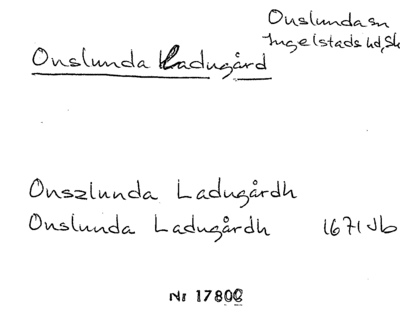 Onslunda sn
Ingelstads hd, Sk
Onslunda Ladugård
Onszlunda Ladugårdh
Onslunda Ladugårdh 1671 Jb
Nr 17800